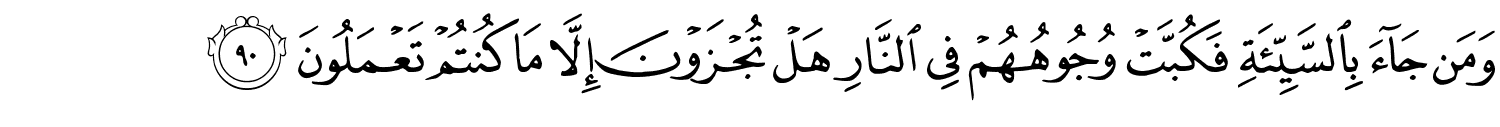 وَمَن جَآءَ بِٱلسَّيِّئَةِ فَكُبَّتۡ وُجُوهُهُمۡ فِي ٱلنَّارِ هَلۡ تُجۡزَوۡنَ إِلَّا مَا كُنتُمۡ تَعۡمَلُونَ ٩٠